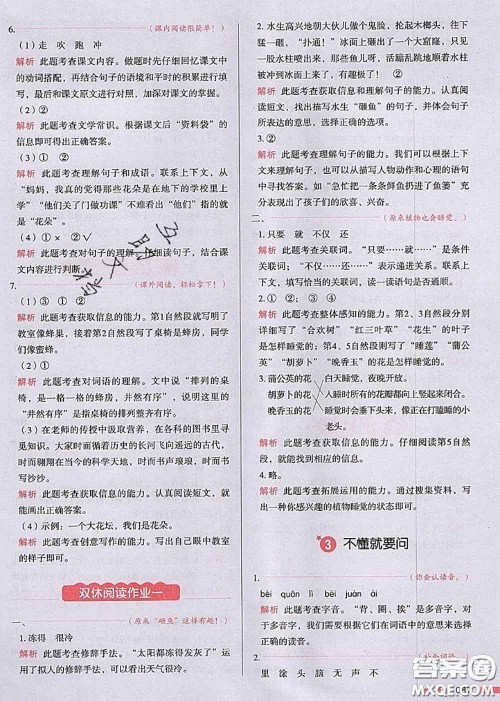 6.
(课内阅读很简单！)
(1)走 吹 跑 冲
解析 此题考查课文内容。做题时先仔细回忆课文中
的动词搭配，再结合句子的语境和平时的积累进行填
填，最后和课文原文进行对照，加深对文章的掌握。
(2)②
解析 此题考查文学常识。根据课后“资料袋”的
信息即可得出正确答案。
(3)① ②
解析 此题考查理解句子和成语。联系上下文，从
“妈妈，我真的觉得那些花朵是在地下的学校里上
学”“他们关了门做功课”不难看出“他们”指的就
是“花朵”。
(4)① × ② √
解析 此题考查对句子的理解。仔细读句子，结合课
文内容进行判断。
7.
(课外阅读，轻松拿下！)
(1)③ ① ②
解析 此题考查获取信息的能力。第1自然段写明了
教室像蜂巢，接着第2自然段写了桌椅是蜂房，同学
们像蜜蜂。
(2)②
解析 此题考查对词语的理解。文中说“排列的桌
椅，是一格一格的蜂房，井然有序”，说明这里的
“井然有序”是指桌椅的排列整齐、有序。
(3)在老师的传授中获取知识，在各科的图书里寻
觅知识。大家时而循着历史的长河飞向遥远的古代，
时而翱翔在当今的大自然，时而书声琅琅，时而书写
沙沙。
解析 此题考查获取信息的能力。认真阅读短文，就
能画出正确答案。
(4)示例：一个大花坛，我们是花朵。
解析 此题考查创意写作的能力。写出自己眼中教室
的样子即可。
双休阅读作业一
一、
(原来“砸鱼”这样有趣！)
1.冻得 很冷
解析 此题考查修辞手法。“太阳都冻得发灰了”运
用了拟人的修辞手法，可以看出天气很冷。
2.水生高兴地朝大伙儿做个鬼脸，先抡起木榔头，往
下一砸，“扑通！”冰面上开了一个大窟窿，只见
一股水柱喷了出来，有的鱼就随着水柱喷到了冰
上，刚一落下时，活蹦乱跳地甩着尾巴，挺欢实。
解析 此题考查获取信息和理解句子的能力。认真阅读
短文，找出描写水生“砸鱼”的句子，并体会句子
所表达的意思，选择填空。
3.②
解析 此题考查理解句子的能力。联系上下文，从
句子中可以看出，作者运用描写人物动作和心理的语
句突出答案。如“急忙把一条条鲜鱼扔进了鱼篓”充
分表现出我们心情的愉快。
二、
(原来植物也会睡觉。)
1.只要 就 不仅 还
解析 此题考查关联词。“只要……就……”是条件
关系关联词，“不仅……还……”表示递进关系。联系上下
文，填写恰当的关联词，使句子表达更通顺。
2.②
解析 此题考查整体感知的能力。第2、3自然段分别
详细写了“合欢树”“红三叶草”“花生”的叶子
是怎样睡觉的；第4、5自然段写了“睡莲”“蒲公
英”“胡萝卜”“晚香玉”的花是怎样睡觉的。
3.蒲公英的花 白天睡觉，夜晚开放。
胡萝卜的花 入睡时所有的花瓣都向上竖起来闭合。
晚香玉的花 入睡时会垂下来，像正在打瞌睡的小
老头。
解析 此题考查获取信息的能力。仔细阅读第5自然
段，就能找出答案。
4.略。
解析 此题考查拓展运用的能力。通过搜集资料，写
出一种你感兴趣的植物睡觉的状态即可。
3 不懂就要问
1.
(你会认读音。)
bèi quān lì bēi juàn āi
解析 此题考查字音。“背、圈、挨”是多音字，对
于多音字，我们要根据它们在词语中的意思来选择
正确的读音。
2.
里 涂 头 脑 无 声 不
答案圈
MXQE.COM